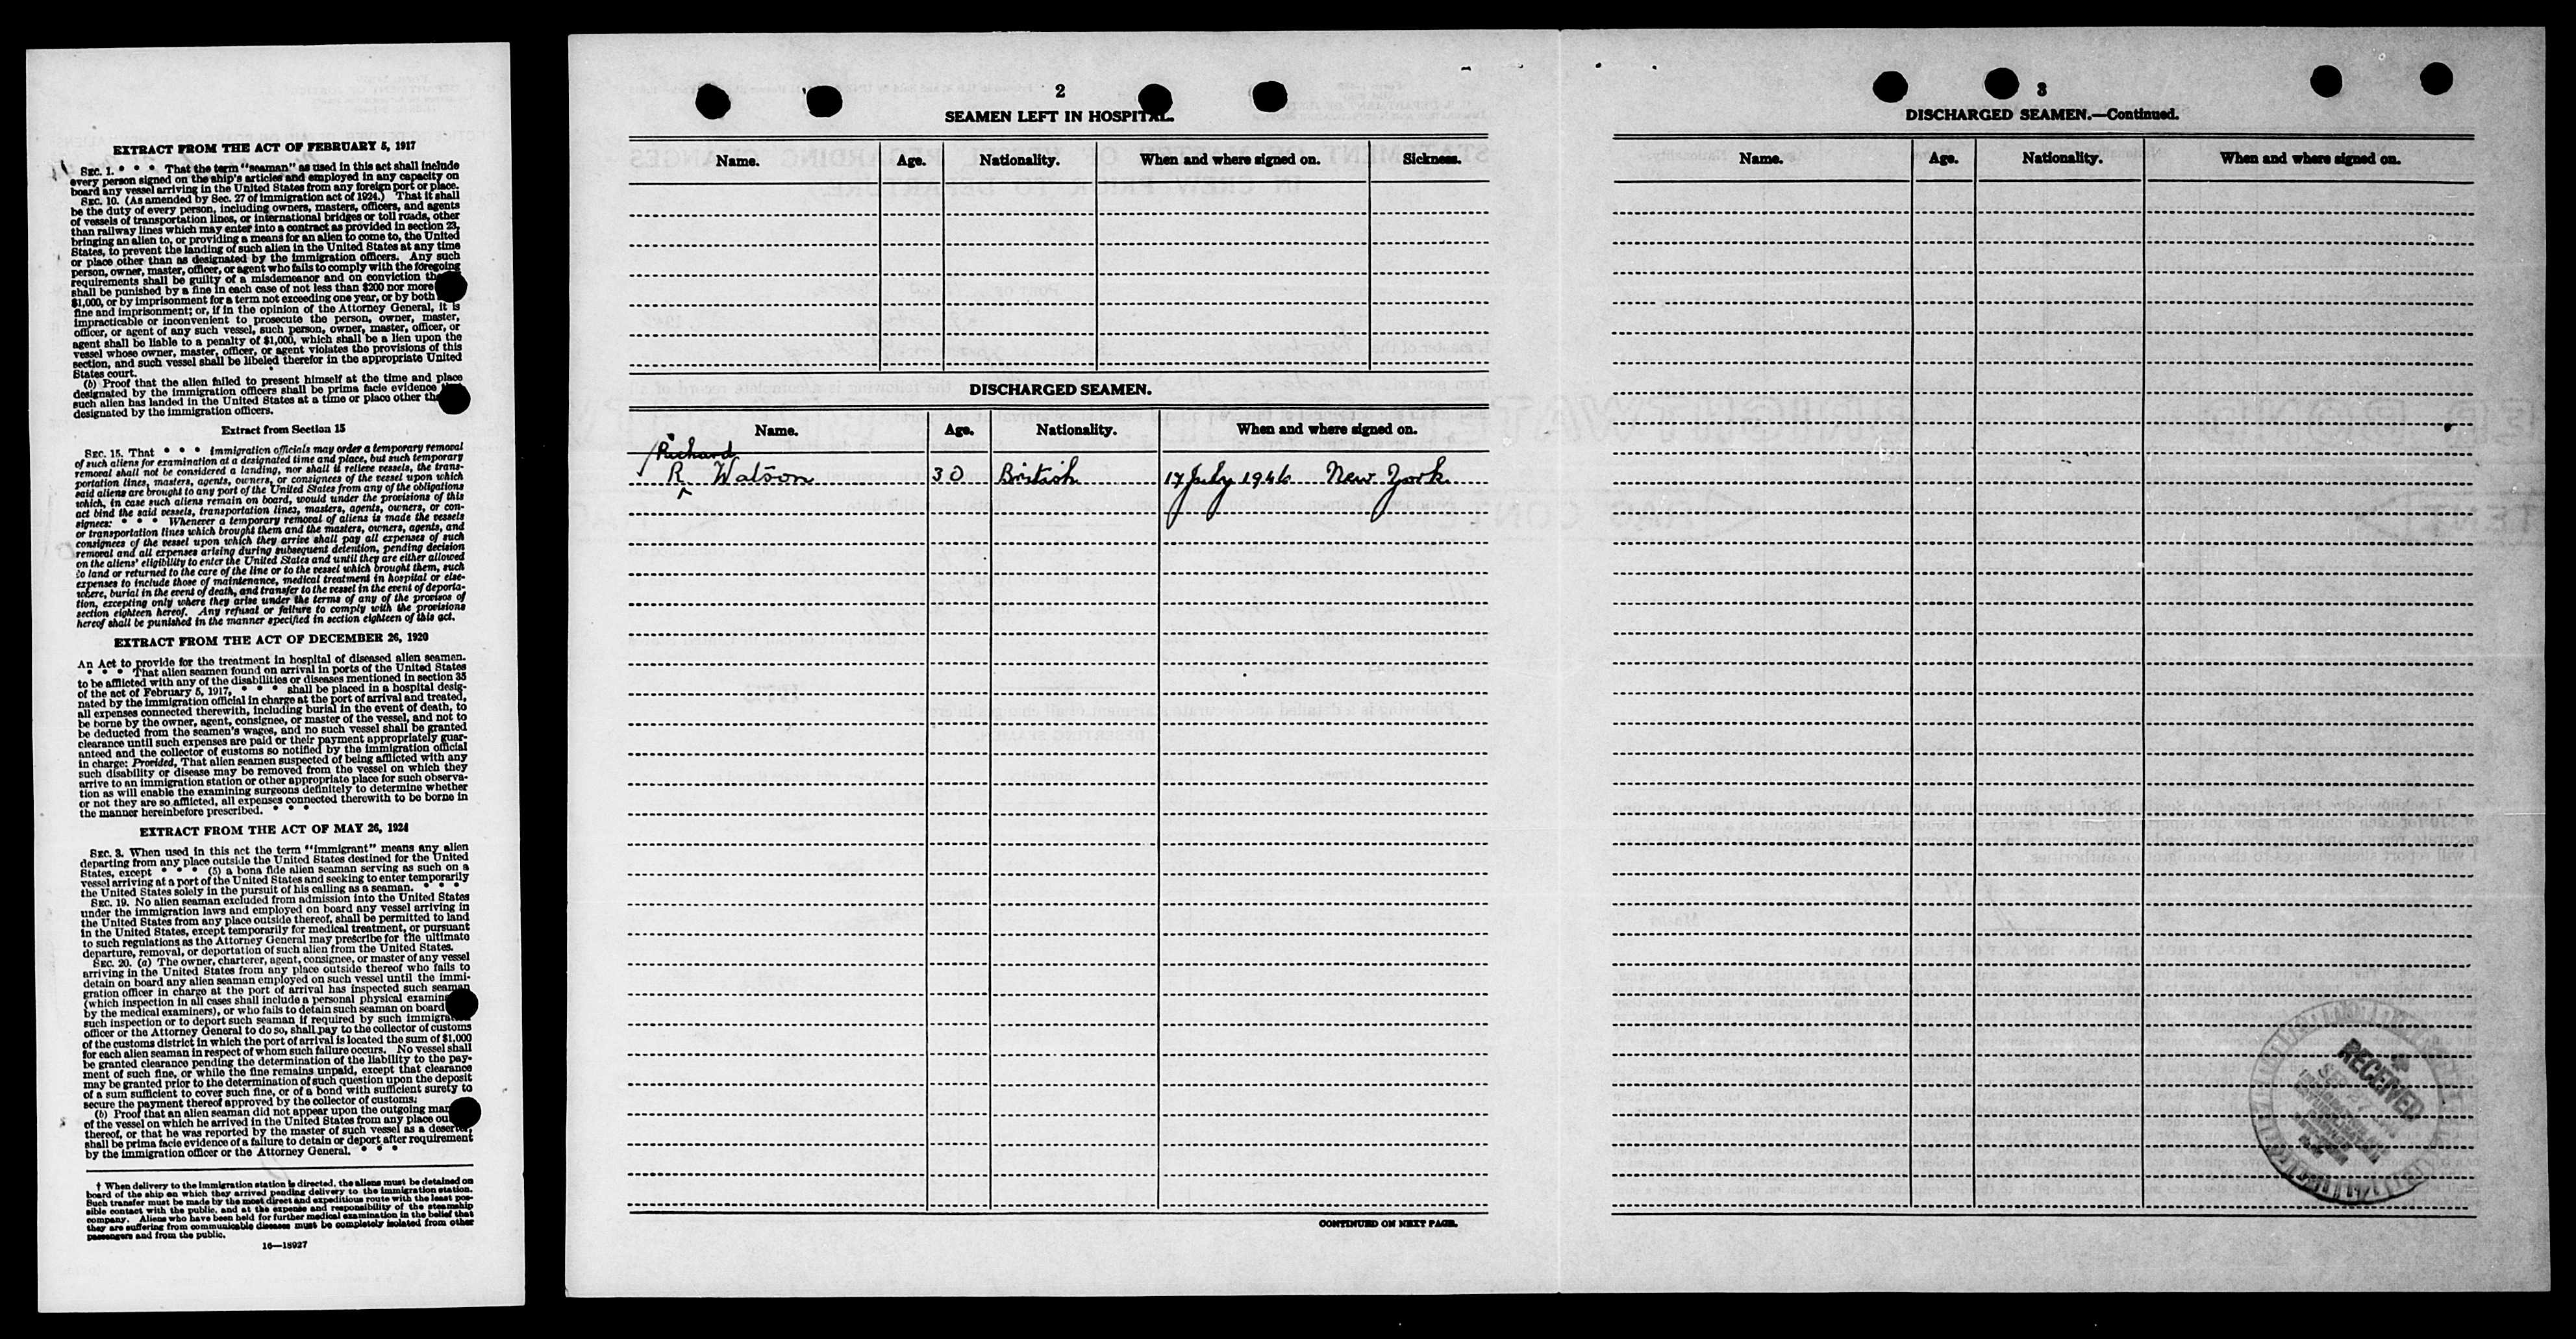 EXTRACT FROM THE ACT OF FEBRUARY 5, 1917
SEC. 1. * * * That the term "seaman" as used in this act shall include
every person signed on the ship's articles and employed in any capacity on
board any vessel arriving in the United States from any foreign port or place.
SEC. 10. (As amended by Sec. 27 of immigration act of 1924.) That it shall
be the duty of every person, including owners, masters, officers, and agents
of vessels of transportation lines, or international bridges or toll roads, other
than railway lines which may enter into a contract as provided in section 23,
bringing an alien to, or providing a means for an alien to come to, the United
States, to prevent the landing of such alien in the United States at any time
or place other than as designated by the immigration officers. Any such
person, owner, master, officer, or agent who fails to comply with the foregoing
requirements shall be guilty of a misdemeanor and on conviction
shall be punished by a fine in each case of not less than $200 nor more
$1,000, or by imprisonment for a term not exceeding one year, or by both
fine and imprisonment; or, if in the opinion of the Attorney General, it is
impracticable or inconvenient to prosecute the person, owner, master,
officer, or agent of any such vessel, such person, owner, master, officer, or
agent shall be liable to a penalty of $1,000, which shall be a lien upon the
vessel whose owner, master, officer, or agent violates the provisions of this
section, and such vessel shall be libeled therefor in the appropriate United
States court.
(b) Proof that the alien failed to present himself at the time and place
designated by the immigration officers shall be prima facie evidence
such alien has landed in the United States at a time or place other
designated by the immigration officers.
Extract from Section 15
SEC. 15. That * * * immigration officials may order a temporary removal
of such aliens for examination at a designated time and place, but such temporary
removal shall not be considered a landing, nor shall it relieve vessels, the trans-
portation lines, masters, agents, owners, or consignees of the vessel upon which
said aliens are brought to any port of the United States from any of the obligations
which, in case such aliens remain on board, would under the provisions of this
act bind the said vessels, transportation lines, masters, agents, owners, or con-
signees: * * * Whenever a temporary removal of aliens is made the vessels
or transportation lines which brought them and the masters, owners, agents, and
consignees of the vessel upon which they arrive shall pay all expenses of such
removal and all expenses arising during subsequent detention, pending decision
on the aliens' eligibility to enter the United States and until they are either allowed
to land or returned to the care of the line or to the vessel which brought them, such
expenses to include those of maintenance, medical treatment in hospital or else-
where, burial in the event of death, and transfer to the vessel in the event of deporta-
tion, excepting only where they arise under the terms of any of the provisos of
section eighteen hereof. Any refusal or failure to comply with the provisions
hereof shall be punished in the manner specified in section eighteen of this act.
EXTRACT FROM THE ACT OF DECEMBER 26, 1920
An Act to provide for the treatment in hospital of diseased alien seamen.
* * * That alien seamen found on arrival in ports of the United States
to be afflicted with any of the disabilities or diseases mentioned in section 35
of the act of February 5, 1917, * * * shall be placed in a hospital desig-
nated by the immigration official in charge at the port of arrival and treated,
all expenses connected therewith, including burial in the event of death, to
be borne by the owner, agent, consignee, or master of the vessel, and not to
be deducted from the seamen's wages, and no such vessel shall be granted
clearance until such expenses are paid or their payment appropriately guar-
anteed and the collector of customs so notified by the immigration official
in charge: Provided, That alien seamen suspected of being afflicted with any
such disability or disease may be removed from the vessel on which they
arrive to an immigration station or other appropriate place for such observa-
tion as will enable the examining surgeons definitely to determine whether
or not they are so afflicted, all expenses connected therewith to be borne in
the manner hereinbefore prescribed. * * *
EXTRACT FROM THE ACT OF MAY 26, 1924
SEC. 3. When used in this act the term "immigrant" means any alien
departing from any place outside the United States destined for the United
States, except * * * (5) a bona fide alien seaman serving as such on a
vessel arriving at a port of the United States and seeking to enter temporarily
the United States solely in the pursuit of his calling as a seaman. * * *
SEC. 19. No alien seaman excluded from admission into the United States
under the immigration laws and employed on board any vessel arriving in
the United States from any place outside thereof, shall be permitted to land
in the United States, except temporarily for medical treatment, or pursuant
to such regulations as the Attorney General may prescribe for the ultimate
departure, removal, or deportation of such alien from the United States.
SEC. 20. (a) The owner, charterer, agent, consignee, or master of any vessel
arriving in the United States from any place outside thereof who fails to
detain on board any alien seaman employed on such vessel until the immi-
gration officer in charge at the port of arrival has inspected such seaman
(which inspection in all cases shall include a personal physical
by the medical examiners), or who fails to detain such seaman on board
such inspection or to deport such seaman if required by such
officer or the Attorney General to do so, shall pay to the collector of customs
of the customs district in which the port of arrival is located the sum of $1,000
for each alien seaman in respect of whom such failure occurs. No vessel shall
be granted clearance pending the determination of the liability to the pay-
ment of such fine, or while the fine remains unpaid, except that clearance
may be granted prior to the determination of such question upon the deposit
of a sum sufficient to cover such fine, or of a bond with sufficient surety to
secure the payment thereof approved by the collector of customs.
(b) Proof that an alien seaman did not appear upon the outgoing
of the vessel on which he arrived in the United States from any place
thereof, or that he was reported by the master of such vessel as a deserter,
shall be prima facie evidence of a failure to detain or deport after requirement
by the immigration officer or the Attorney General. * * *
† When delivery to the immigration station is directed, the aliens must be detained on
board of the ship on which they arrived pending delivery to the immigration station.
Such transfer must be made by the most direct and expeditious route with the least pos-
sible contact with the public, and at the expense and responsibility of the steamship
company. Aliens who have been held for further medical examination in the belief that
they are suffering from communicable diseases must be completely isolated from other
passengers and from the public.
16—18927
2
SEAMEN LEFT IN HOSPITAL.
Name. Age. Nationality. When and where signed on. Sickness.
DISCHARGED SEAMEN.
Name. Age. Nationality. When and where signed on.
Richard
R Watson 30 British 17 July 1946 New York
CONTINUED ON NEXT PAGE.
3
DISCHARGED SEAMEN.—Continued.
Name. Age. Nationality. When and where signed on.
RECEIVED